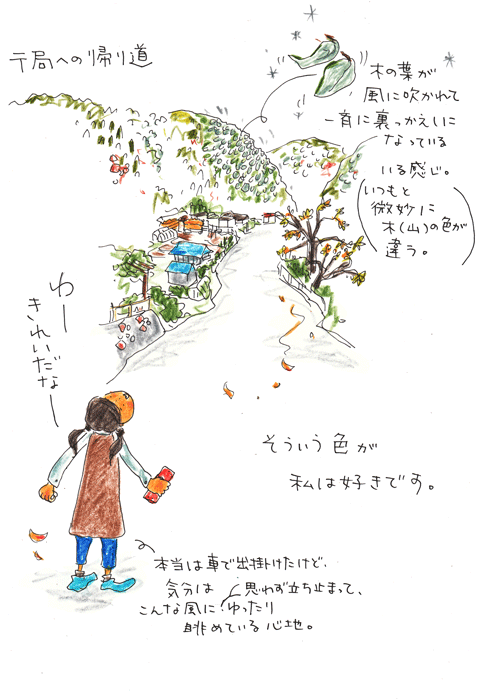 〒局への帰り道
木の葉が
風に吹かれて
一斉に裏っかえしに
なっている
いる感じ。
(いつもと
微妙に
木(山)の色が
違う。)
わー
きれいだなー
そういう色が
私は好きです。
本当は車で出掛けたけど、
気分は 思わず立ち止まって、
こんな風に ゆったり
眺めている心地。